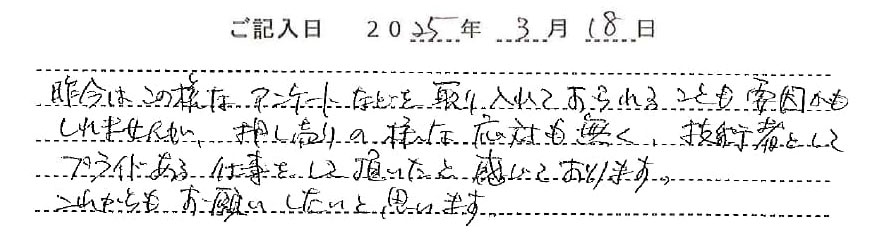 ご記入日 2025年 3月 18日
昨今はこの様なアンケートなどを取り入れておられることも要因かも
しれませんが、押し売りの様な応対も無く、技術者として
プライドある仕事をして頂いたと感じております。
これからもお願いしたいと思います。